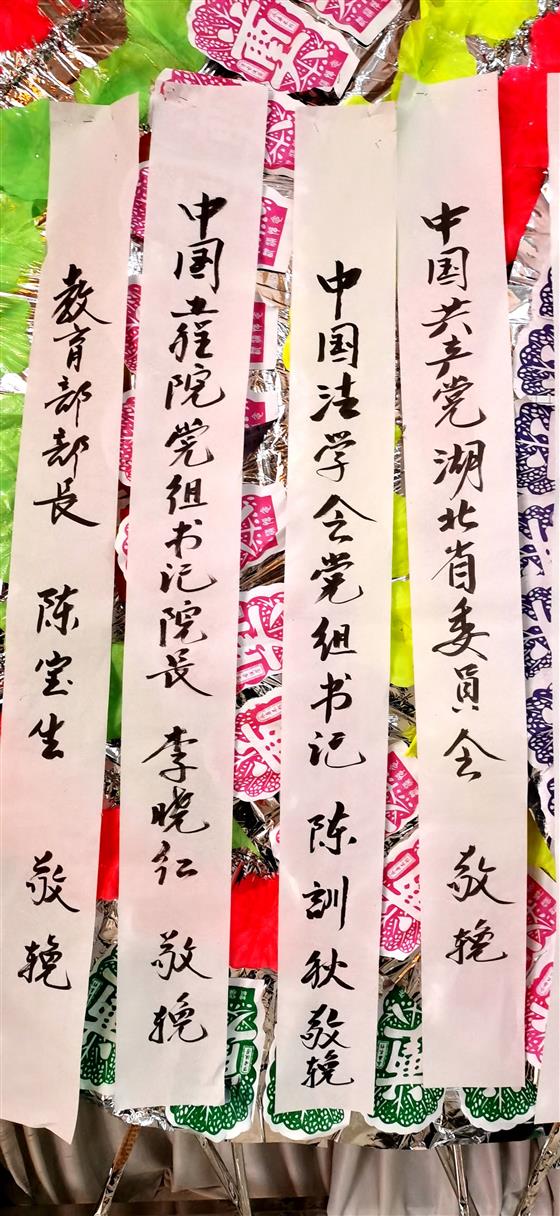 中国共产党湖北省委員会 敬輓
中国法学会党组书记 陈訓秋敬輓
中国工程院党组书记院长 李晓红 敬輓
教育部部长 陈宝生 敬輓